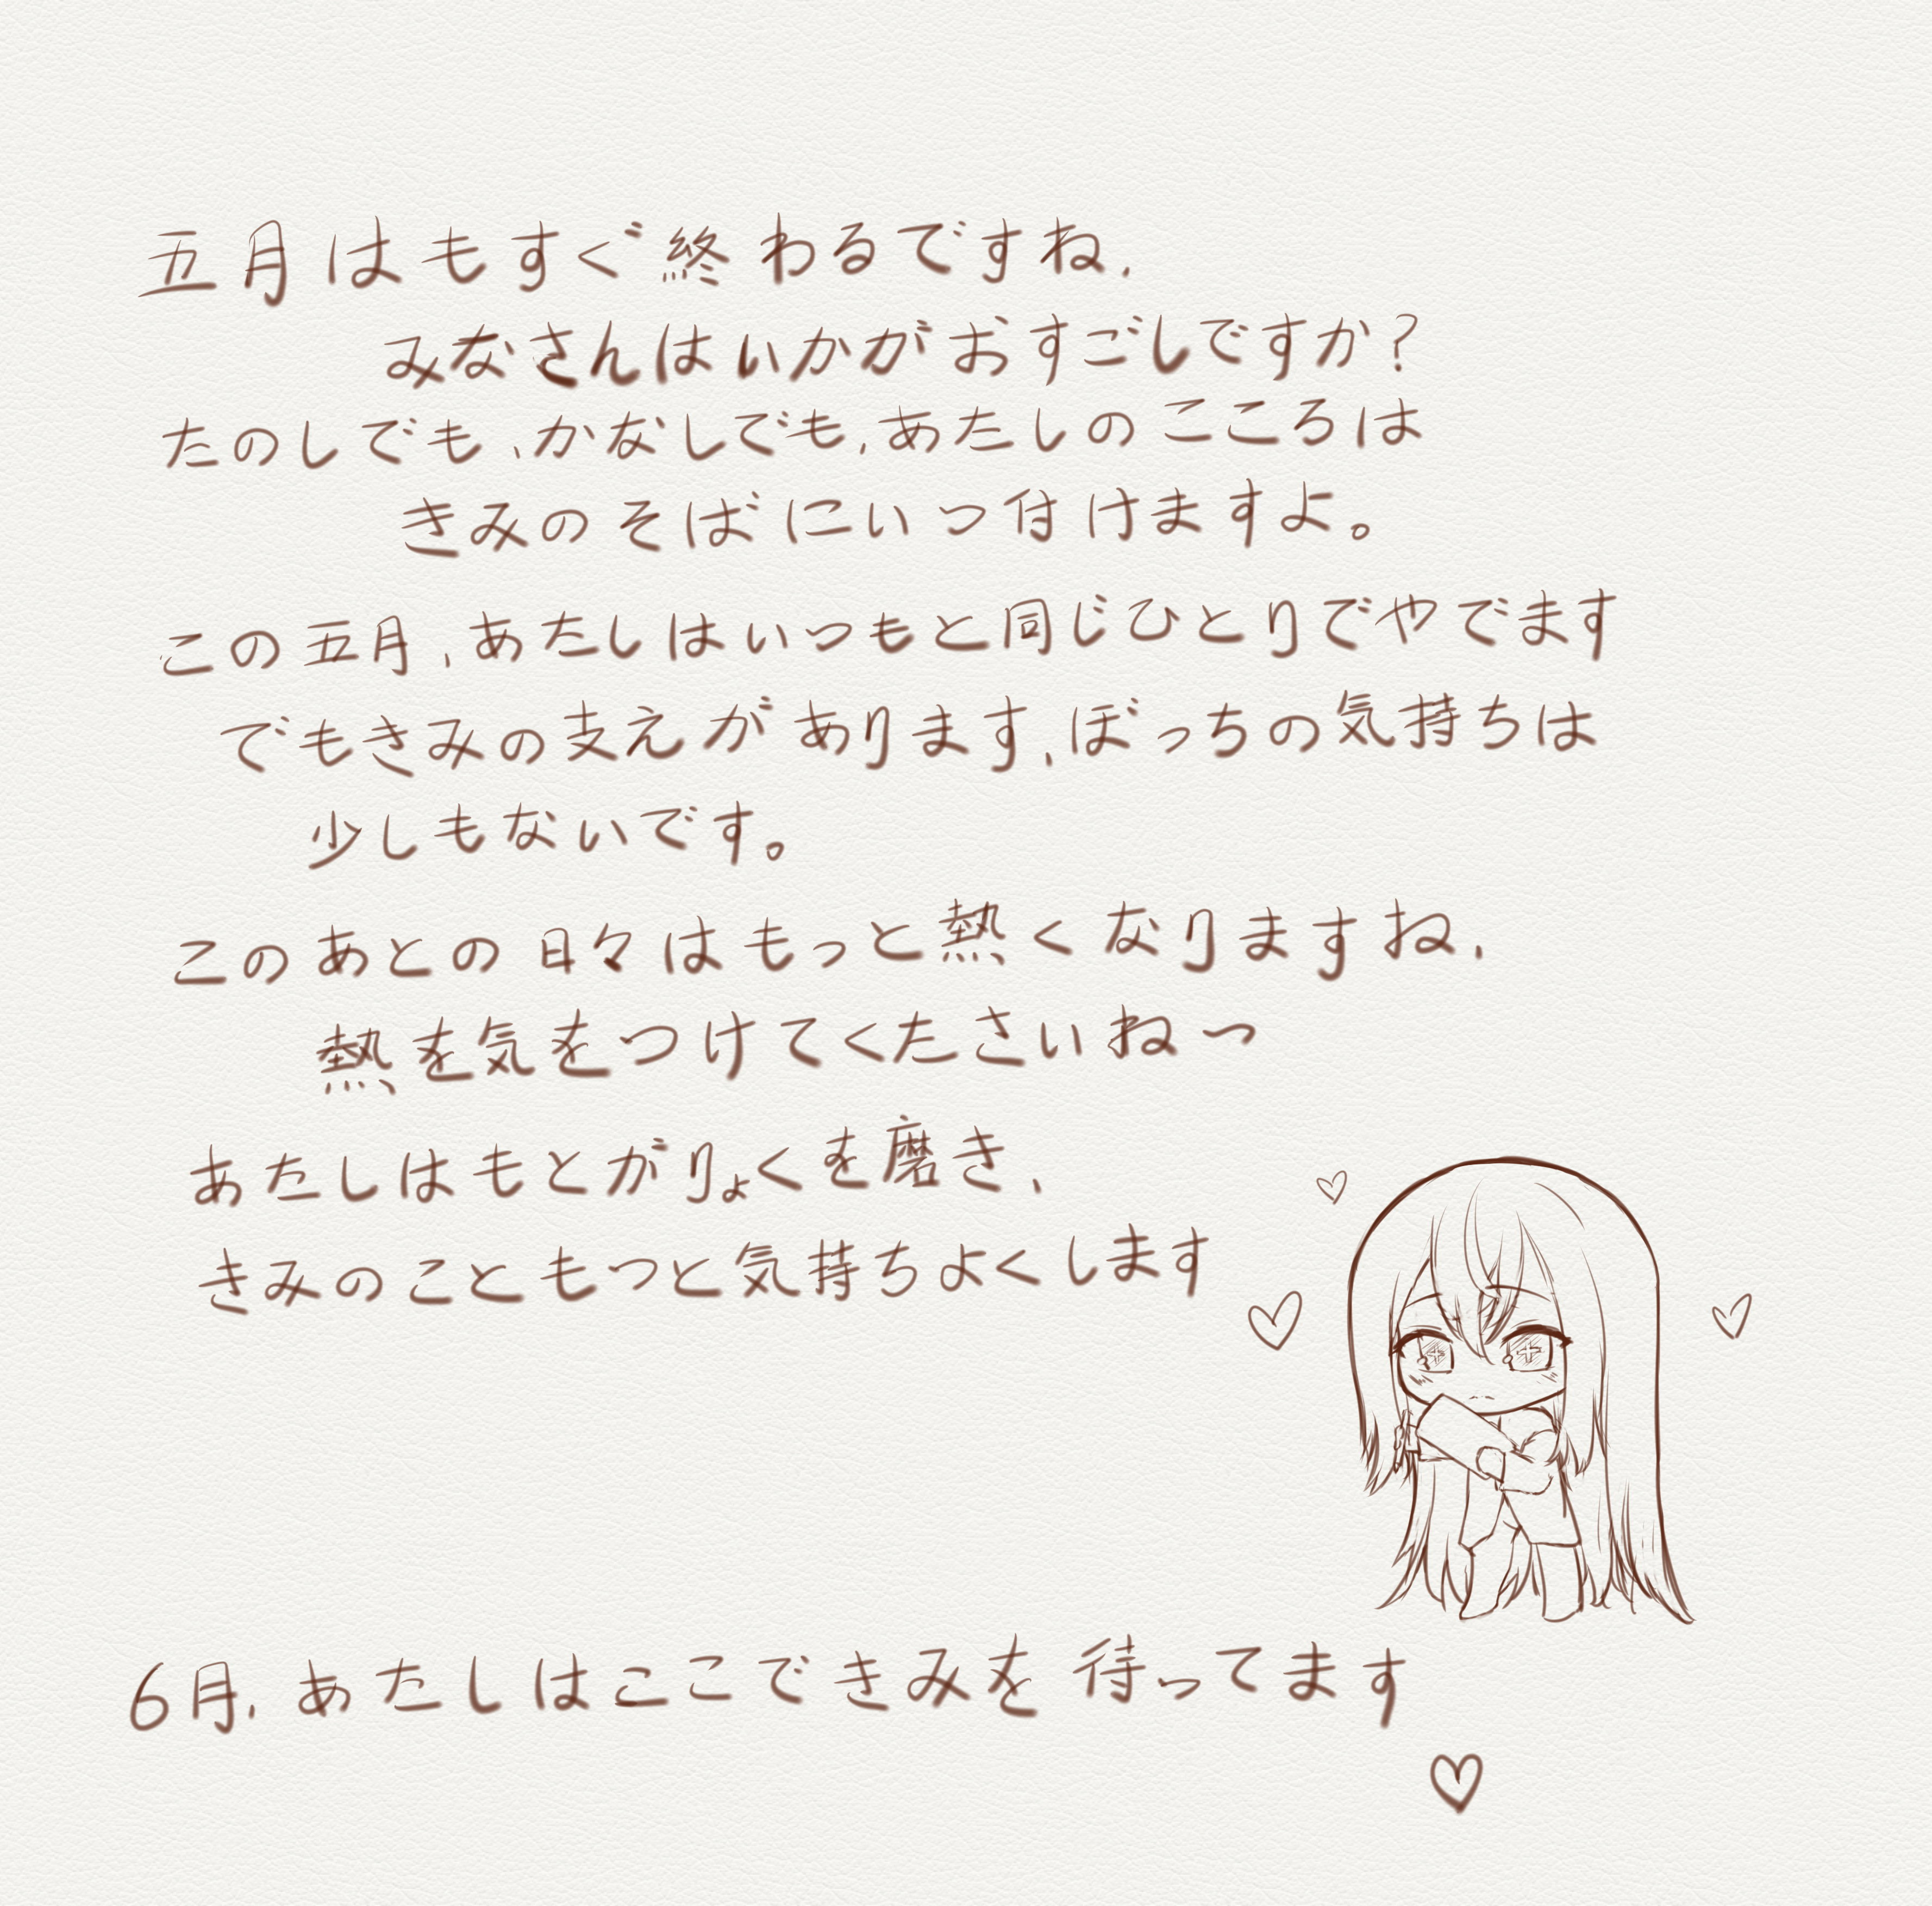 五月はもすぐ終わるですね、
みなさんはいかがおすごしですか?
たのしでも、かなしでも、あたしのこころは
きみのそばにいつ付けますよ。
この五月、あたしはいつもと同じひとりでやでます
でもきみの支えがあります、ぼっちの気持ちは
少しもないです。
このあとの日々はもっと熱くなりますね、
熱を気をつけてくたさいね〜
あたしはもとがりょくを磨き、
きみのこともつと気持ちよくします
6月、あたしはここできみを待ってます
♡